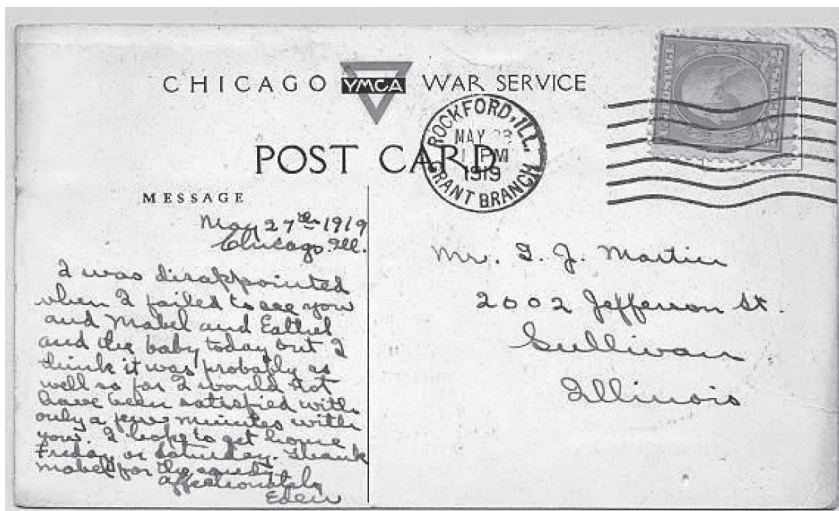 CHICAGO YMCA WAR SERVICE
POST CARD
ROCKFORD, ILL.
MAY 28
1 PM
1919
GRANT BRANCH
MESSAGE
May 27th 1919
Chicago Ill.
I was disappointed
when I failed to see you
and Mabel and Eathel
and the baby today but I
think it was probably as
well so for I would not
have been satisfied with
only a few minutes with
you. I hope to get home
Friday or Saturday. Thank
Mabel for the candy
affectionately
Eden
Mr. I. J. Martin
2002 Jefferson St.
Sullivan
Illinois